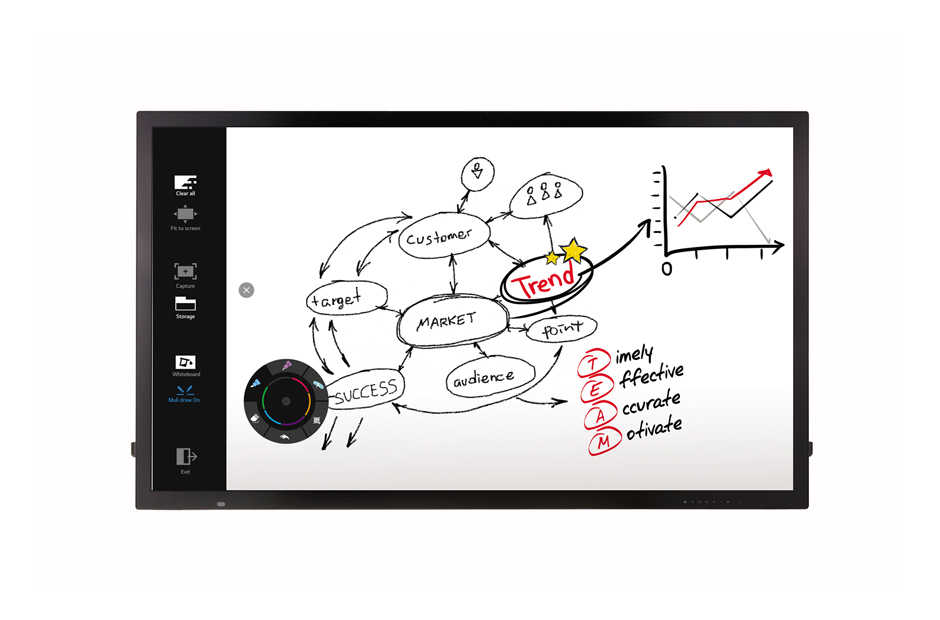 Clear all
Fit to screen
Capture
Storage
Whiteboard
Multi draw On
Exit
customer
target
Trend
MARKET
point
audience
SUCCESS
0
Timely
Effective
Accurate
Motivate